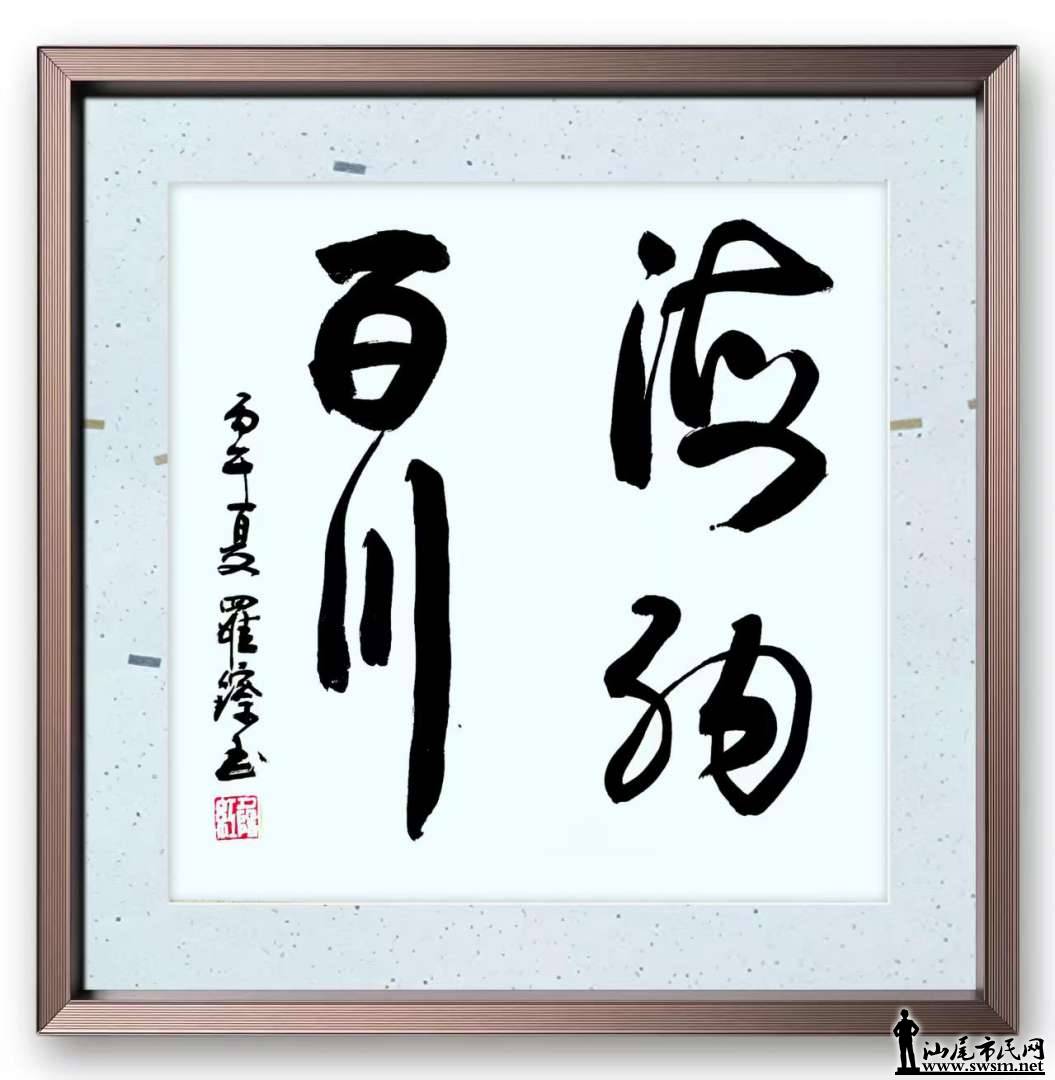 海納
百川
丙午夏 羅
汕尾市民网
www.swsm.net